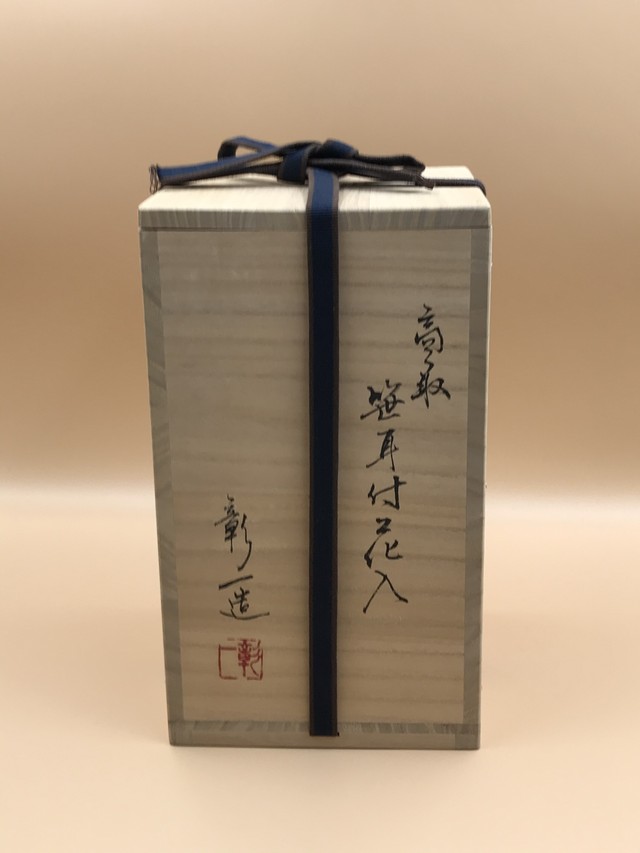 高取
笹耳付花入
彰一造
彰一